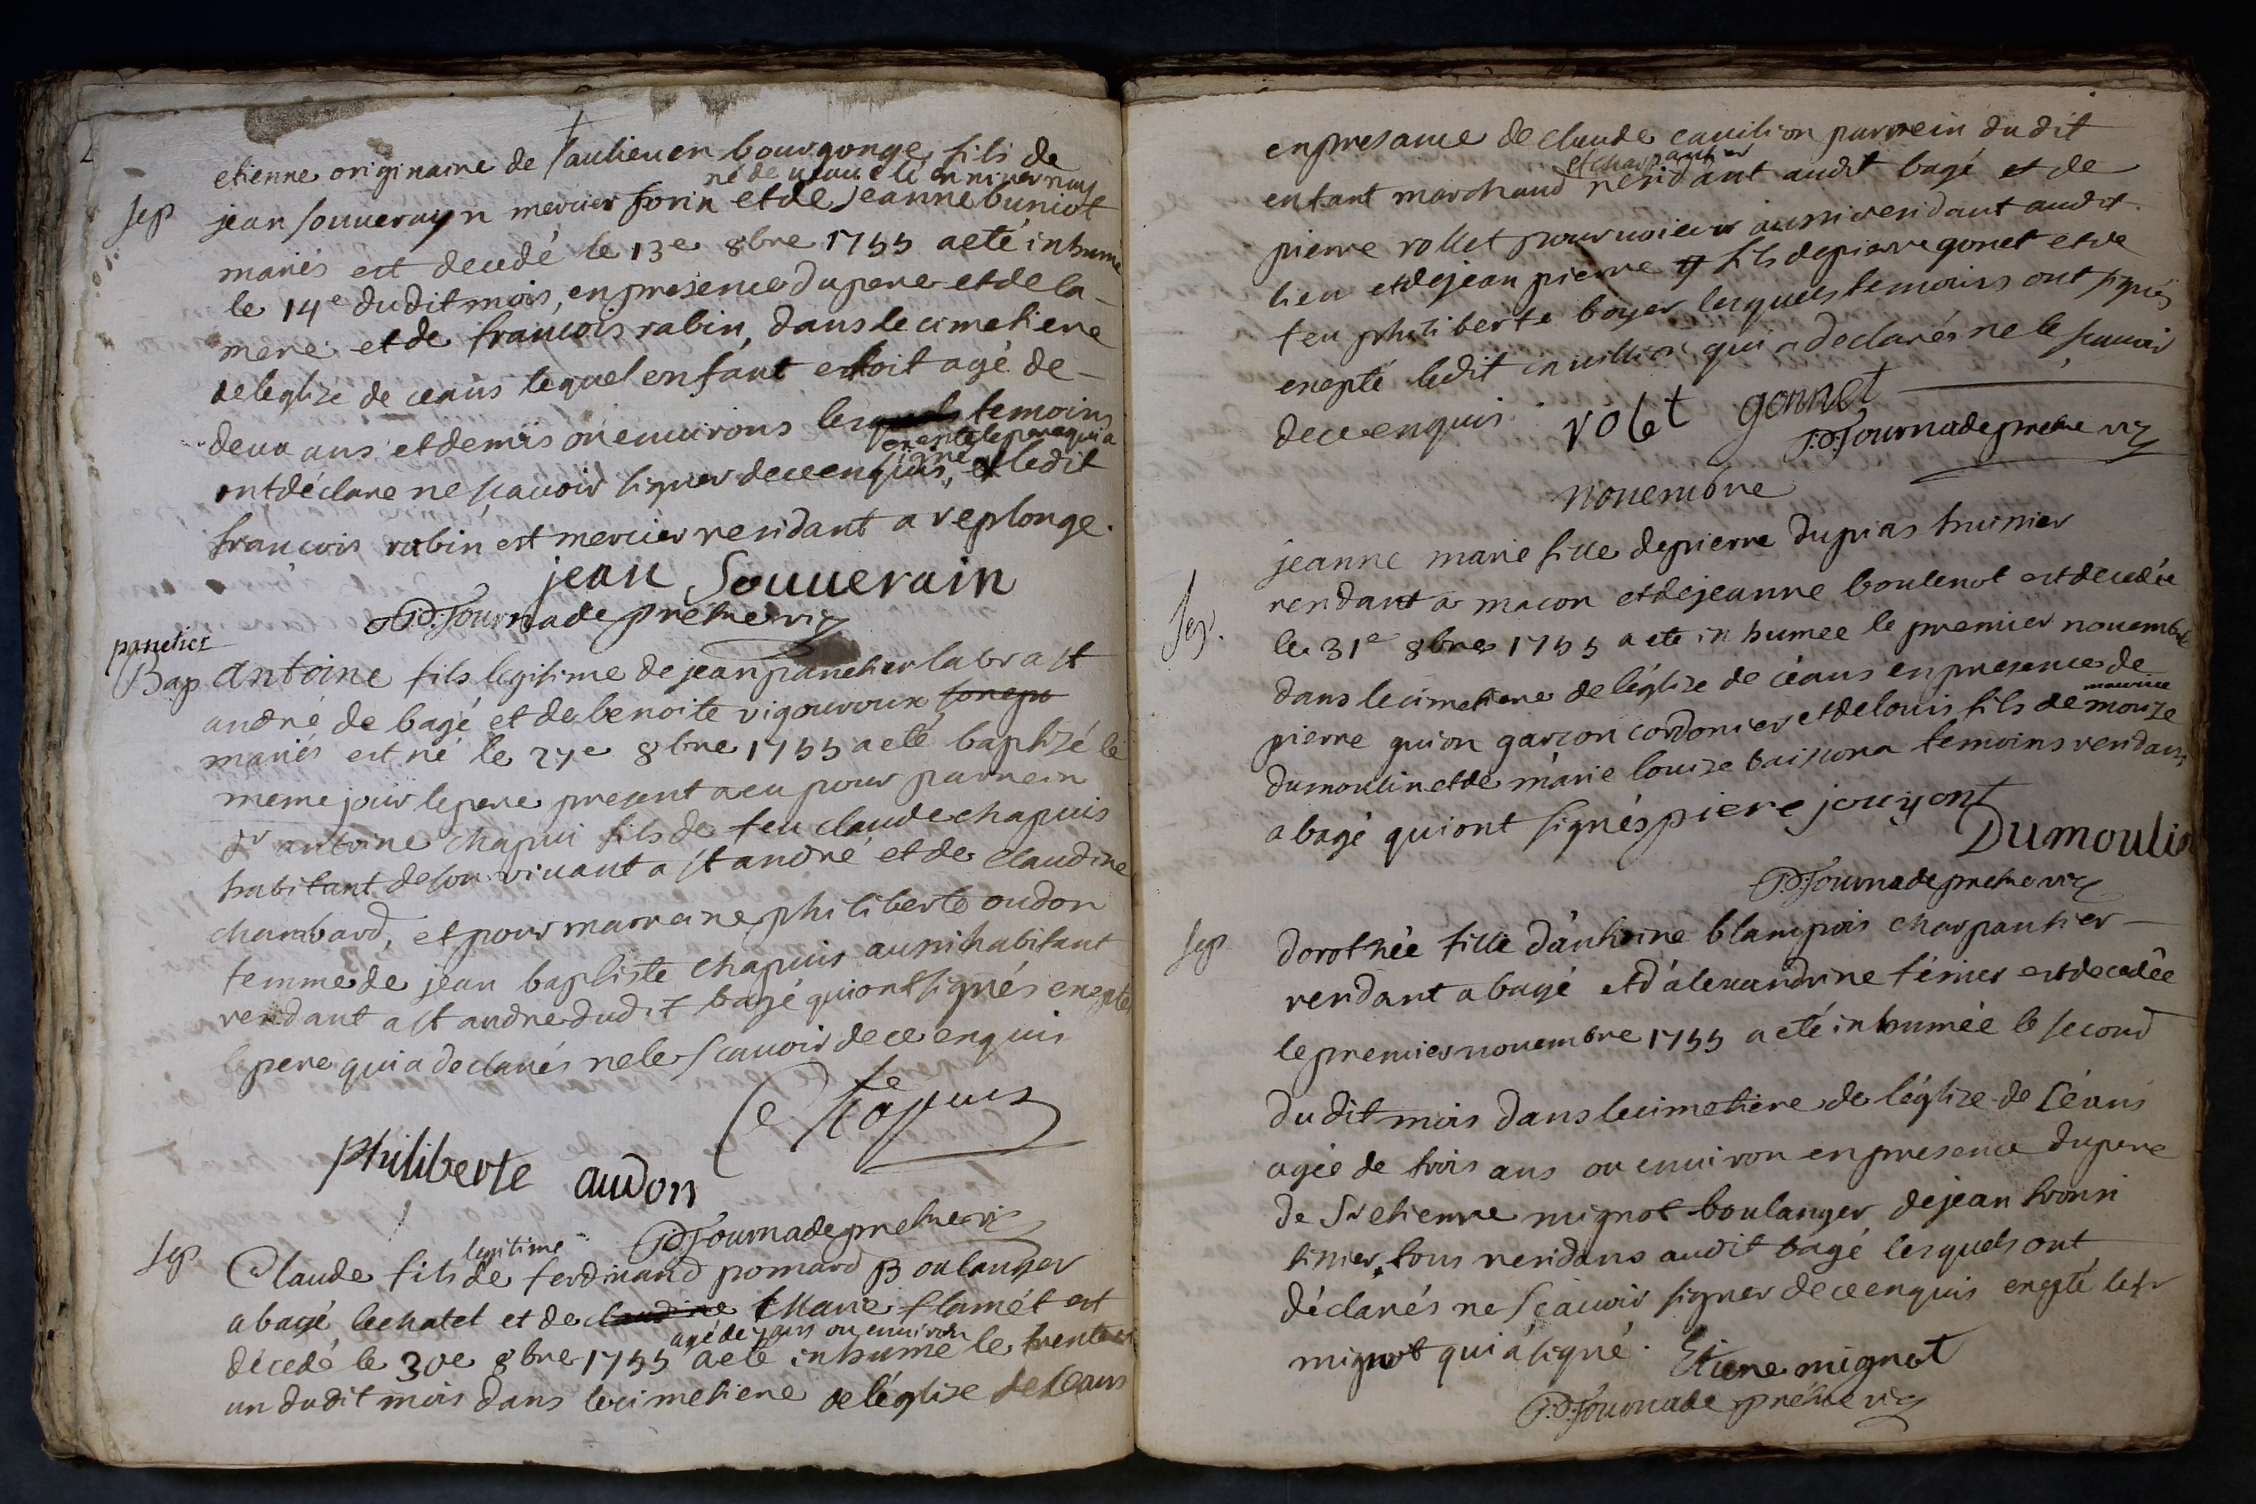 etienne originaire de saulieu en bourgonge, fils de
né de en nivernois
sep jean souverayn mercier forin et de jeanne buniot
mariés est decedé le 13e 8bre 1755 a eté inhumé
le 14e dudit mois, en presence du pere et de la
mere et de francois rabin, dans le cimetiere
de leglize de ceans lequel enfant estoit agé de
deux ans et demis ou environs lesquels temoins
exepté le pere qui a
signé
ont déclare ne scavoir signer de ce enquis, et ledit
francois rabin est mercier residant a replonge.
jean Souverain
P.D. Tournade pretre vic
panetier
Bap antoine fils legitime de jean panetier labr a st
andré de bagé et de benoite vigouroux
mariés est né le 27e 8bre 1755 a eté baptizé le
meme jour le pere present a eu pour parrein
sr antoine chapui fils de feu claude chapuis
habitant de son vivant a st andré et de claudine
chambard, et pour marreine philiberte oudon
femme de jean baptiste chapuis aussi habitant
residant a st andre dudit bagé qui ont signés exepté
le pere qui a declarés ne le scavoir de ce enquis
Philiberte audon
P.D. Tournade pretre vic
legitime
sep Claude fils de ferdinand pomard Boulanger
a bagé le chatel et de claudine Marie flamét est
agé de ans ou environ
décedé le 30e 8bre 1755 a eté inhumé le trente et
un dudit mois dans le cimetiere de léglize de ceans
en presance de claude cavilion parrein dudit
et charpantier
enfant marchand residant audit bagé et de
pierre rollet pourvoieur aussi residant audit
lieu et de jean pierre fils de pierre gonet et de
feu philiberte boyer lesquels temoins ont signés
exepté ledit cavillion qui a declarés ne le scavoir
de ce enquis. rolet gonnet
P.D. Tournade pretre vic
novembre
jeanne marie fille de pierre dupras huissier
residant a macon et de jeanne boulenot est decedée
sep. le 31e 8bre 1755 a eté inhumée le premier novembre
dans le cimetiere de léglize de céans en presence de
maurice
pierre guion garcon cordonier et de louis fils de
dumoulin et de marie louize temoins residans
a bagé qui ont signés piere jouyont
Dumoulin
P.D. Tournade pretre vic
sep dorothée fille dántoine blampois charpantier
residant a bagé et d'alexandrine est decedée
le premier novembre 1755 a eté inhumée le second
dudit mois dans le cimetiere de léglize de Céans
agée de trois ans ou environ en presence du pere
de Sr etienne mignot boulanger de jean
tissier tous residans audit bagé lesquels ont
déclarés ne scavoir signer de ce enquis exepté le sr
mignot qui a signé. Etiene mignot
P.D. Tournade pretre vic